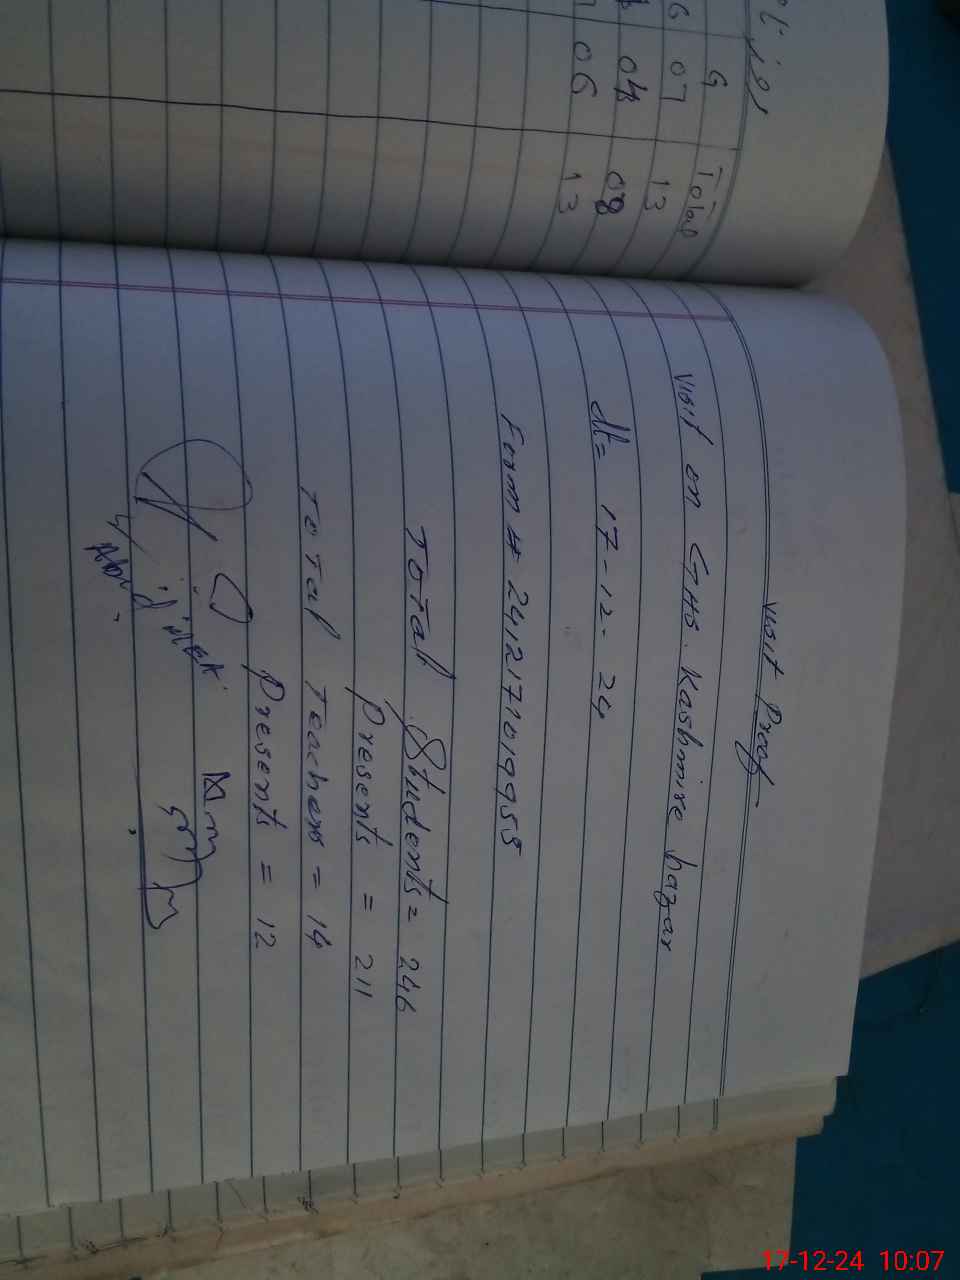 G Total
07 13
04 08
06 13
Visit Proof
Visit on GHS. Kashmire bazar
dt= 17-12-24
Form # 241217101955
Total Students = 246
Presents = 211
Total Teachers = 14
Presents = 12
17-12-24 10:07